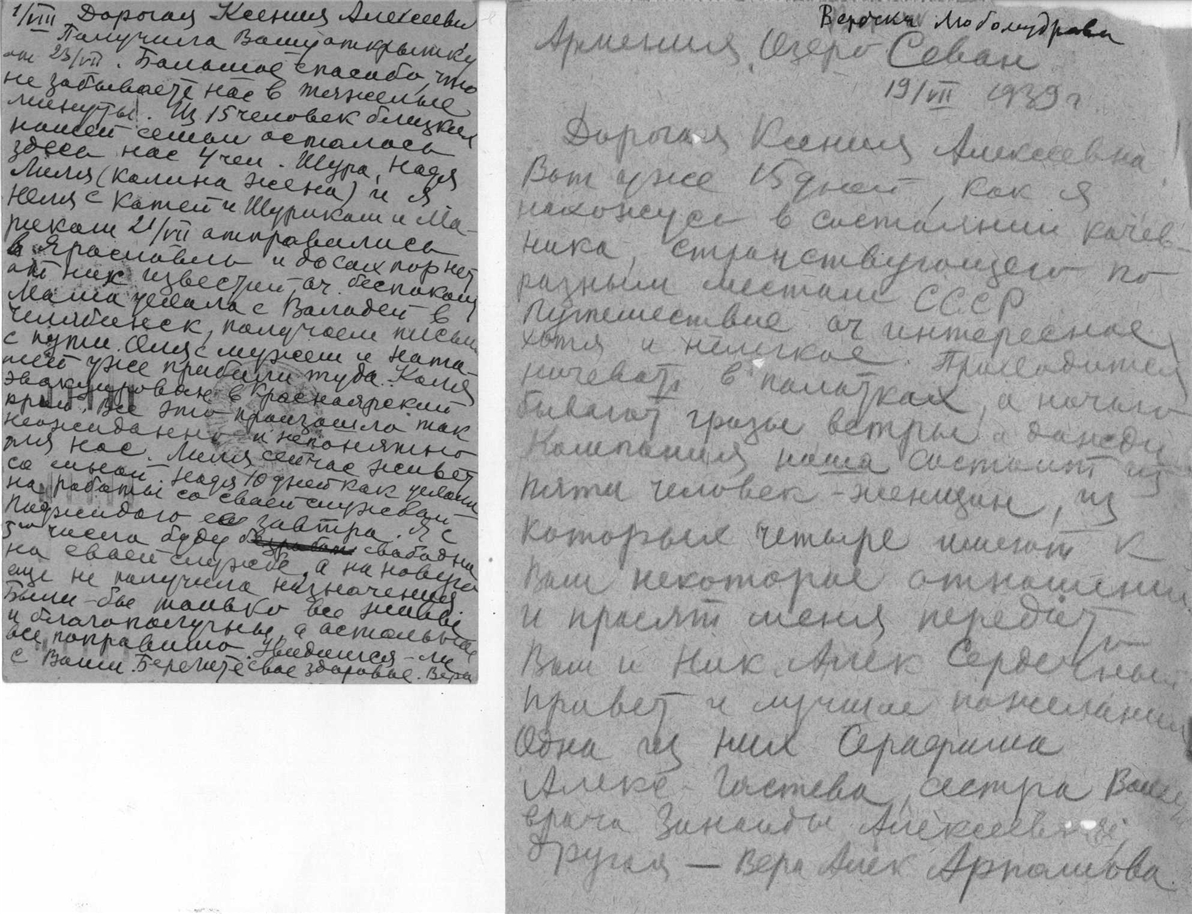 1/VIII Дорогая Ксения Алексеевн
Получила Вашу открытку
от 23/VII. Большое спасибо, что
не забываете нас в тяжелые
минуты. Из 15 человек близких
нашей семьи осталось
здесь нас 4 чел. Шура, Надя
Лиля (Колина жена) и я
Неля с Катей и Шуриком и Ма-
риком 21/VII отправились
в Ярославль и до сих пор нет
от них известий оч. беспокоим
Маша уехала с Володей в
Челябинск, получаем письм
с пути. Оля с мужем и Ната-
шей уже прибыли туда. Коля
эвакуирован в Красноярский
край. Все это произошло так
неожиданно и непонятно
для нас. Лиля сейчас живет
со мной. Надя 10 дней как уехала
на работы со своей службой
поджидаю ее завтра. Я с
5го числа буду свободна
на своей службе, а на новую
еще не получила назначения.
Были-бы только все живы
и благополучны, а остальное
все поправимо. Увидимся-ли
с Вами. Берегите свое здоровье. Вера
Верочка Любомудрова
Армения, Озеро Севан
19/VII 1939 г.
Дорогая Ксения Алексеевна
Вот уже 15 дней, как я
нахожусь в состоянии кочев-
ника, странствующего по
разным местам СССР
Путешествие оч интересное
хотя и нелегкое. Приходится
ночевать в палатках а ночью
бывают грозы ветры и дожди
Компания наша состоит из
пяти человек - женщин, из
которых четыре имеют к
Вам некоторое отношение
и просят меня передать
Вам и Ник. Алек Сердечный
привет и лучшие пожелания
Одна из них Серафима
Алекс- Гастева, сестра Вашего
врача Зинаиды Алексеевны
другая — Вера Алек